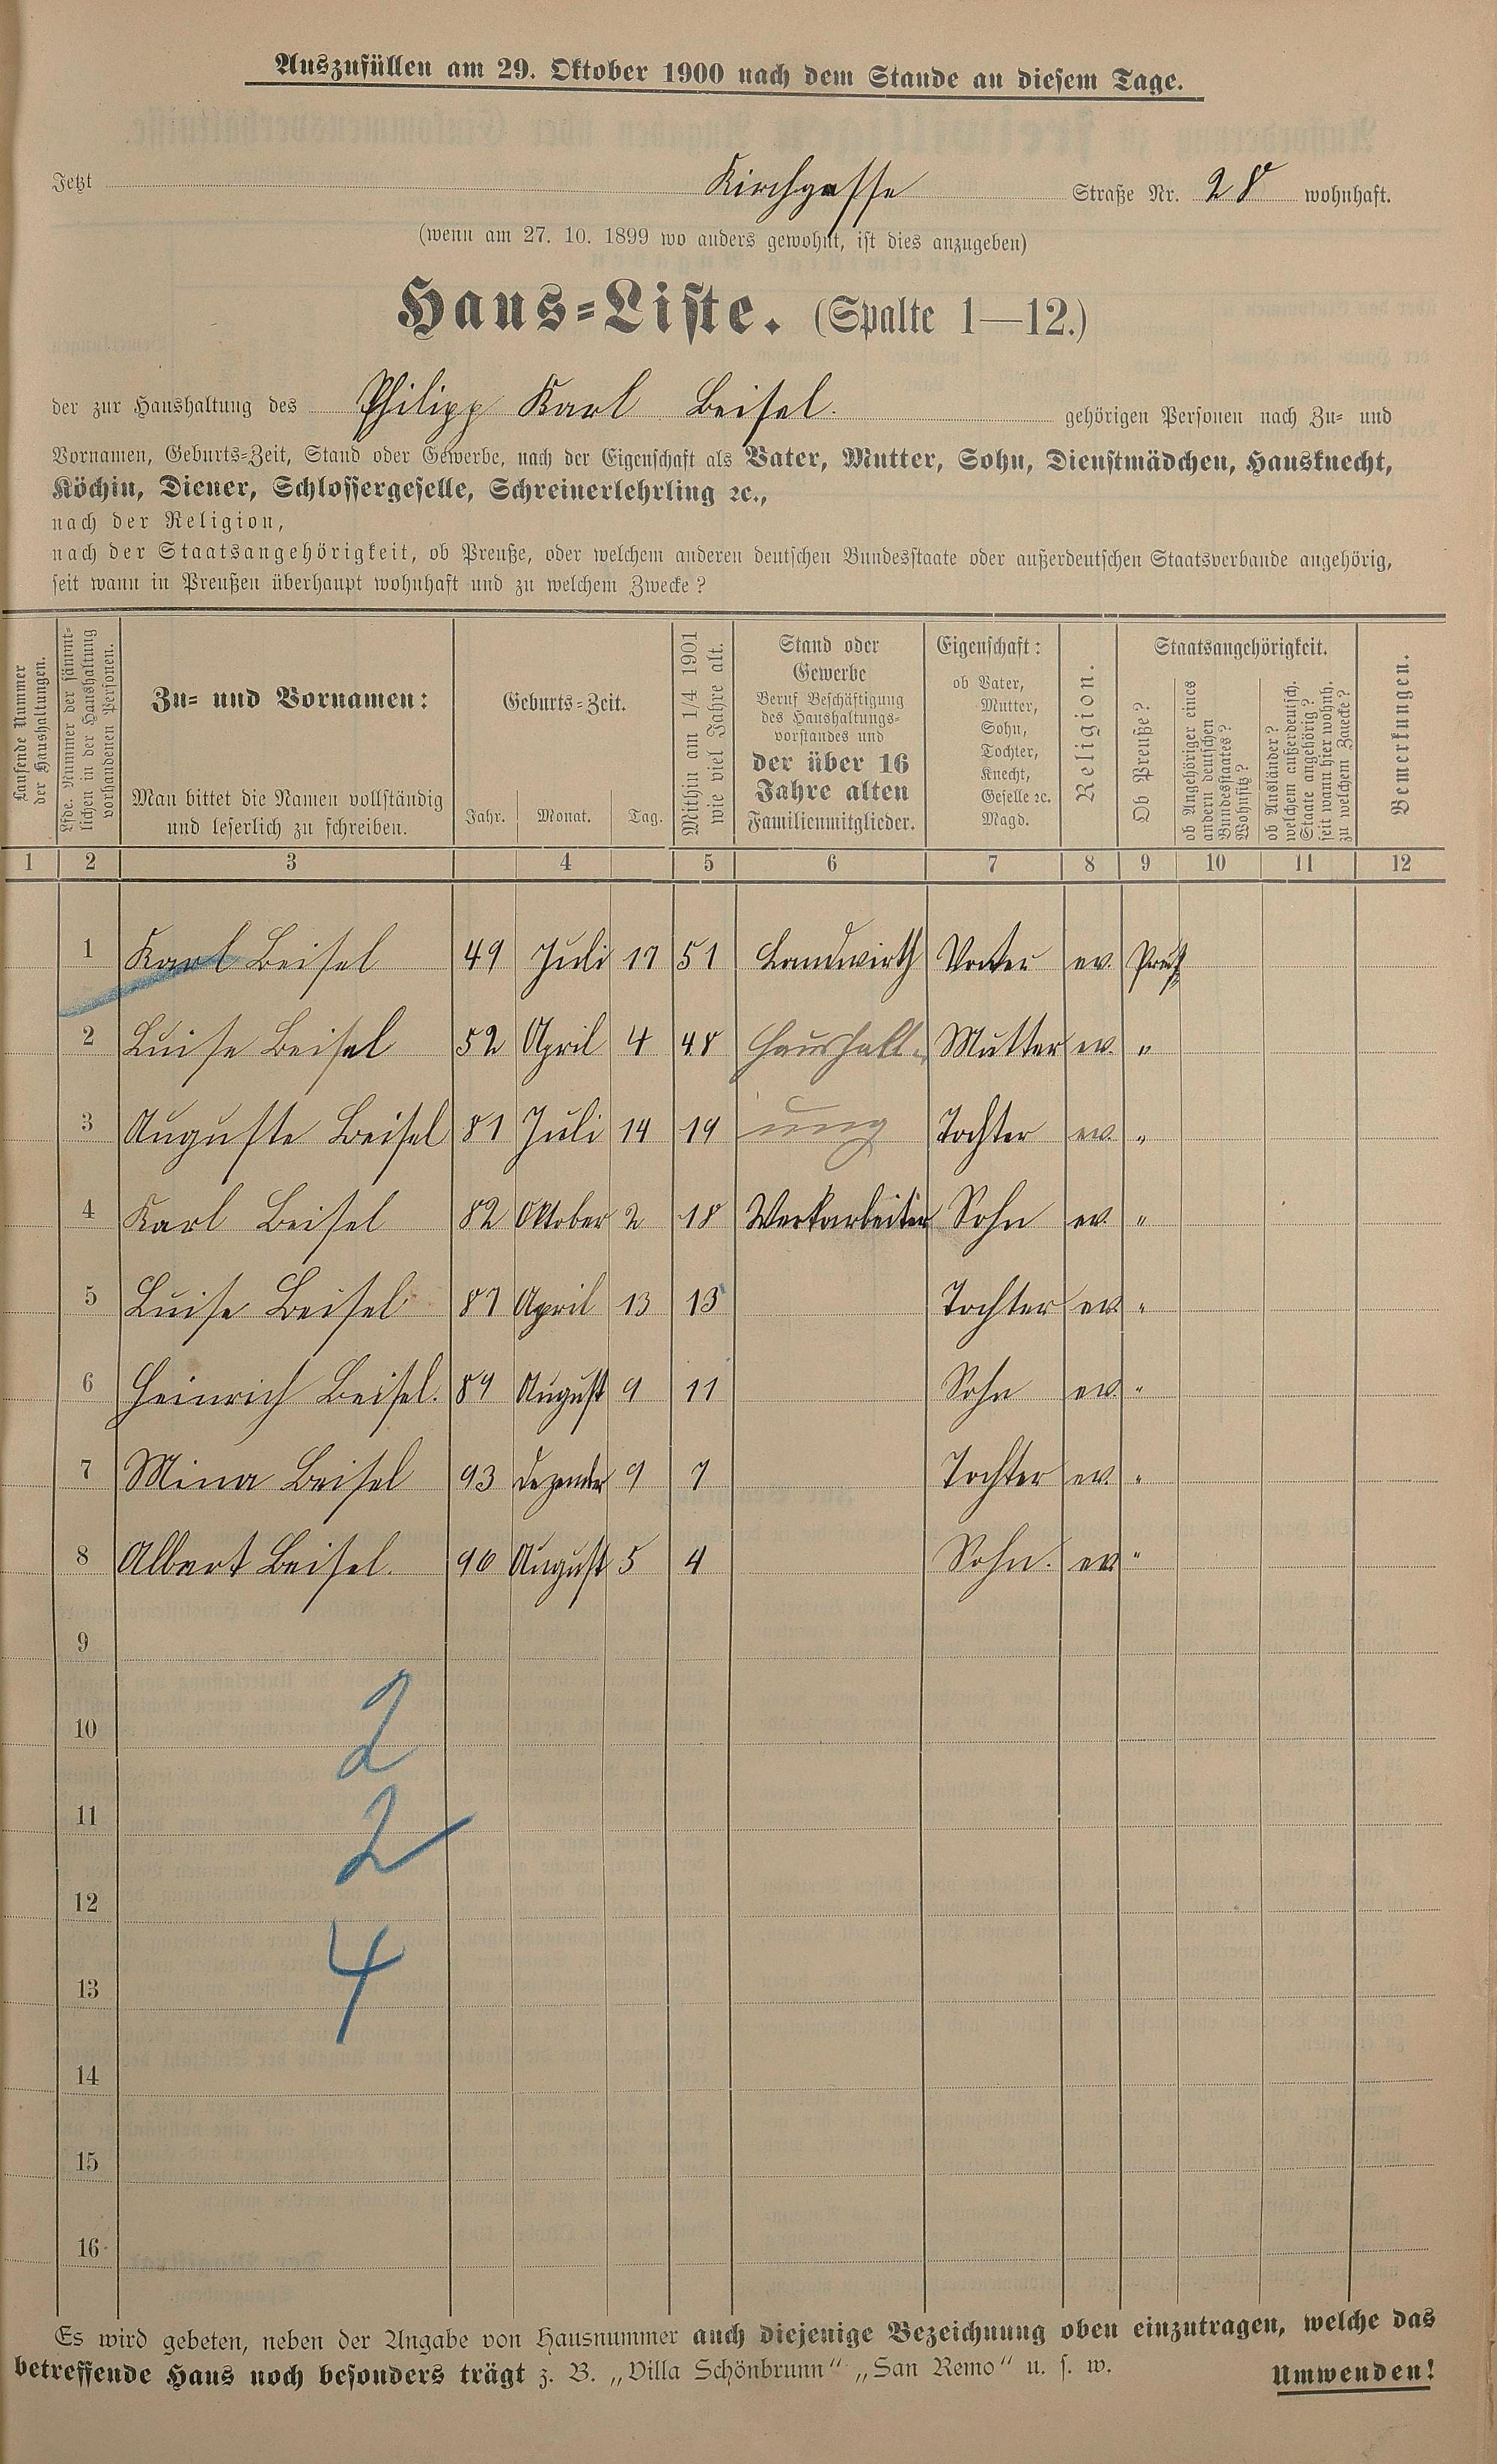 Auszufüllen am 29. Oktober 1900 nach dem Stande an diesem Tage.
Jetzt Kirchgasse Straße Nr. 28 wohnhaft.
(wenn am 27. 10. 1899 wo anders gewohnt, ist dies anzugeben)
Haus-Liste. (Spalte 1—12.)
der zur Haushaltung des Philipp Karl Beisel. gehörigen Personen nach Zu- und
Vornamen, Geburts-Zeit, Stand oder Gewerbe, nach der Eigenschaft als Vater, Mutter, Sohn, Dienstmädchen, Hausknecht,
Köchin, Diener, Schlossergeselle, Schreinerlehrling ꝛc.,
nach der Religion,
nach der Staatsangehörigkeit, ob Preuße, oder welchem anderen deutschen Bundesstaate oder außerdeutschen Staatsverbande angehörig,
seit wann in Preußen überhaupt wohnhaft und zu welchem Zwecke?
Laufende Nummer
der Haushaltungen.
Lfde. Nummer der sämmt-
lichen in der Haushaltung
vorhandenen Personen.
Zu- und Vornamen:
Man bittet die Namen vollständig
und leserlich zu schreiben.
Geburts-Zeit.
Jahr. Monat. Tag.
Mithin am 1/4 1901
wie viel Jahre alt.
Stand oder
Gewerbe
Beruf Beschäftigung
des Haushaltungs-
vorstandes und
der über 16
Jahre alten
Familienmitglieder.
Eigenschaft:
ob Vater,
Mutter,
Sohn,
Tochter,
Knecht,
Geselle ꝛc.
Magd.
Religion.
Staatsangehörigkeit.
Ob Preuße?
ob Angehöriger eines
andern deutschen
Bundesstaates?
Wohnsitz?
ob Ausländer?
welchem außerdeutsch.
Staate angehörig?
seit wann hier wohnh.
zu welchem Zwecke?
Bemerkungen.
1 2 3 4 5 6 7 8 9 10 11 12
1 Karl Beisel 49 Juli 17 51 Landwirth Vater ev. Preuß
2 Luise Beisel 52 April 4 48 Haushalt- Mutter ev. "
3 Auguste Beisel 81 Juli 14 19 ung Tochter ev. "
4 Karl Beisel 82 Oktober 2 18 Werkarbeiter Sohn ev. "
5 Luise Beisel 87 April 13 13 Tochter ev. "
6 Heinrich Beisel. 89 August 9 11 Sohn ev. "
7 Mina Beisel 93 Dezember 9 7 Tochter ev. "
8 Albert Beisel. 96 August 5 4 Sohn. ev. "
9
10
2
11
2
12
13
4
14
15
16
Es wird gebeten, neben der Angabe von Hausnummer auch diejenige Bezeichnung oben einzutragen, welche das
betreffende Haus noch besonders trägt z. B. „Villa Schönbrunn" „San Remo" u. s. w. Umwenden!